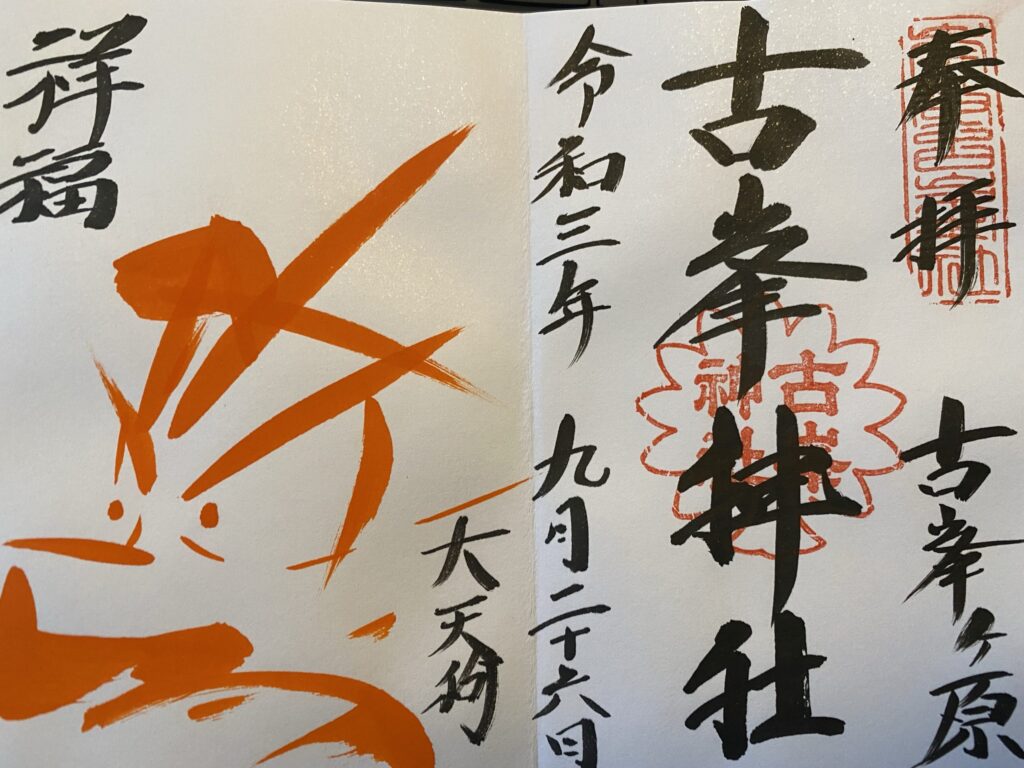 奉拝
古峯ヶ原
古峯神社
古峯神社
令和三年
九月二十六日
大天狗
祥福